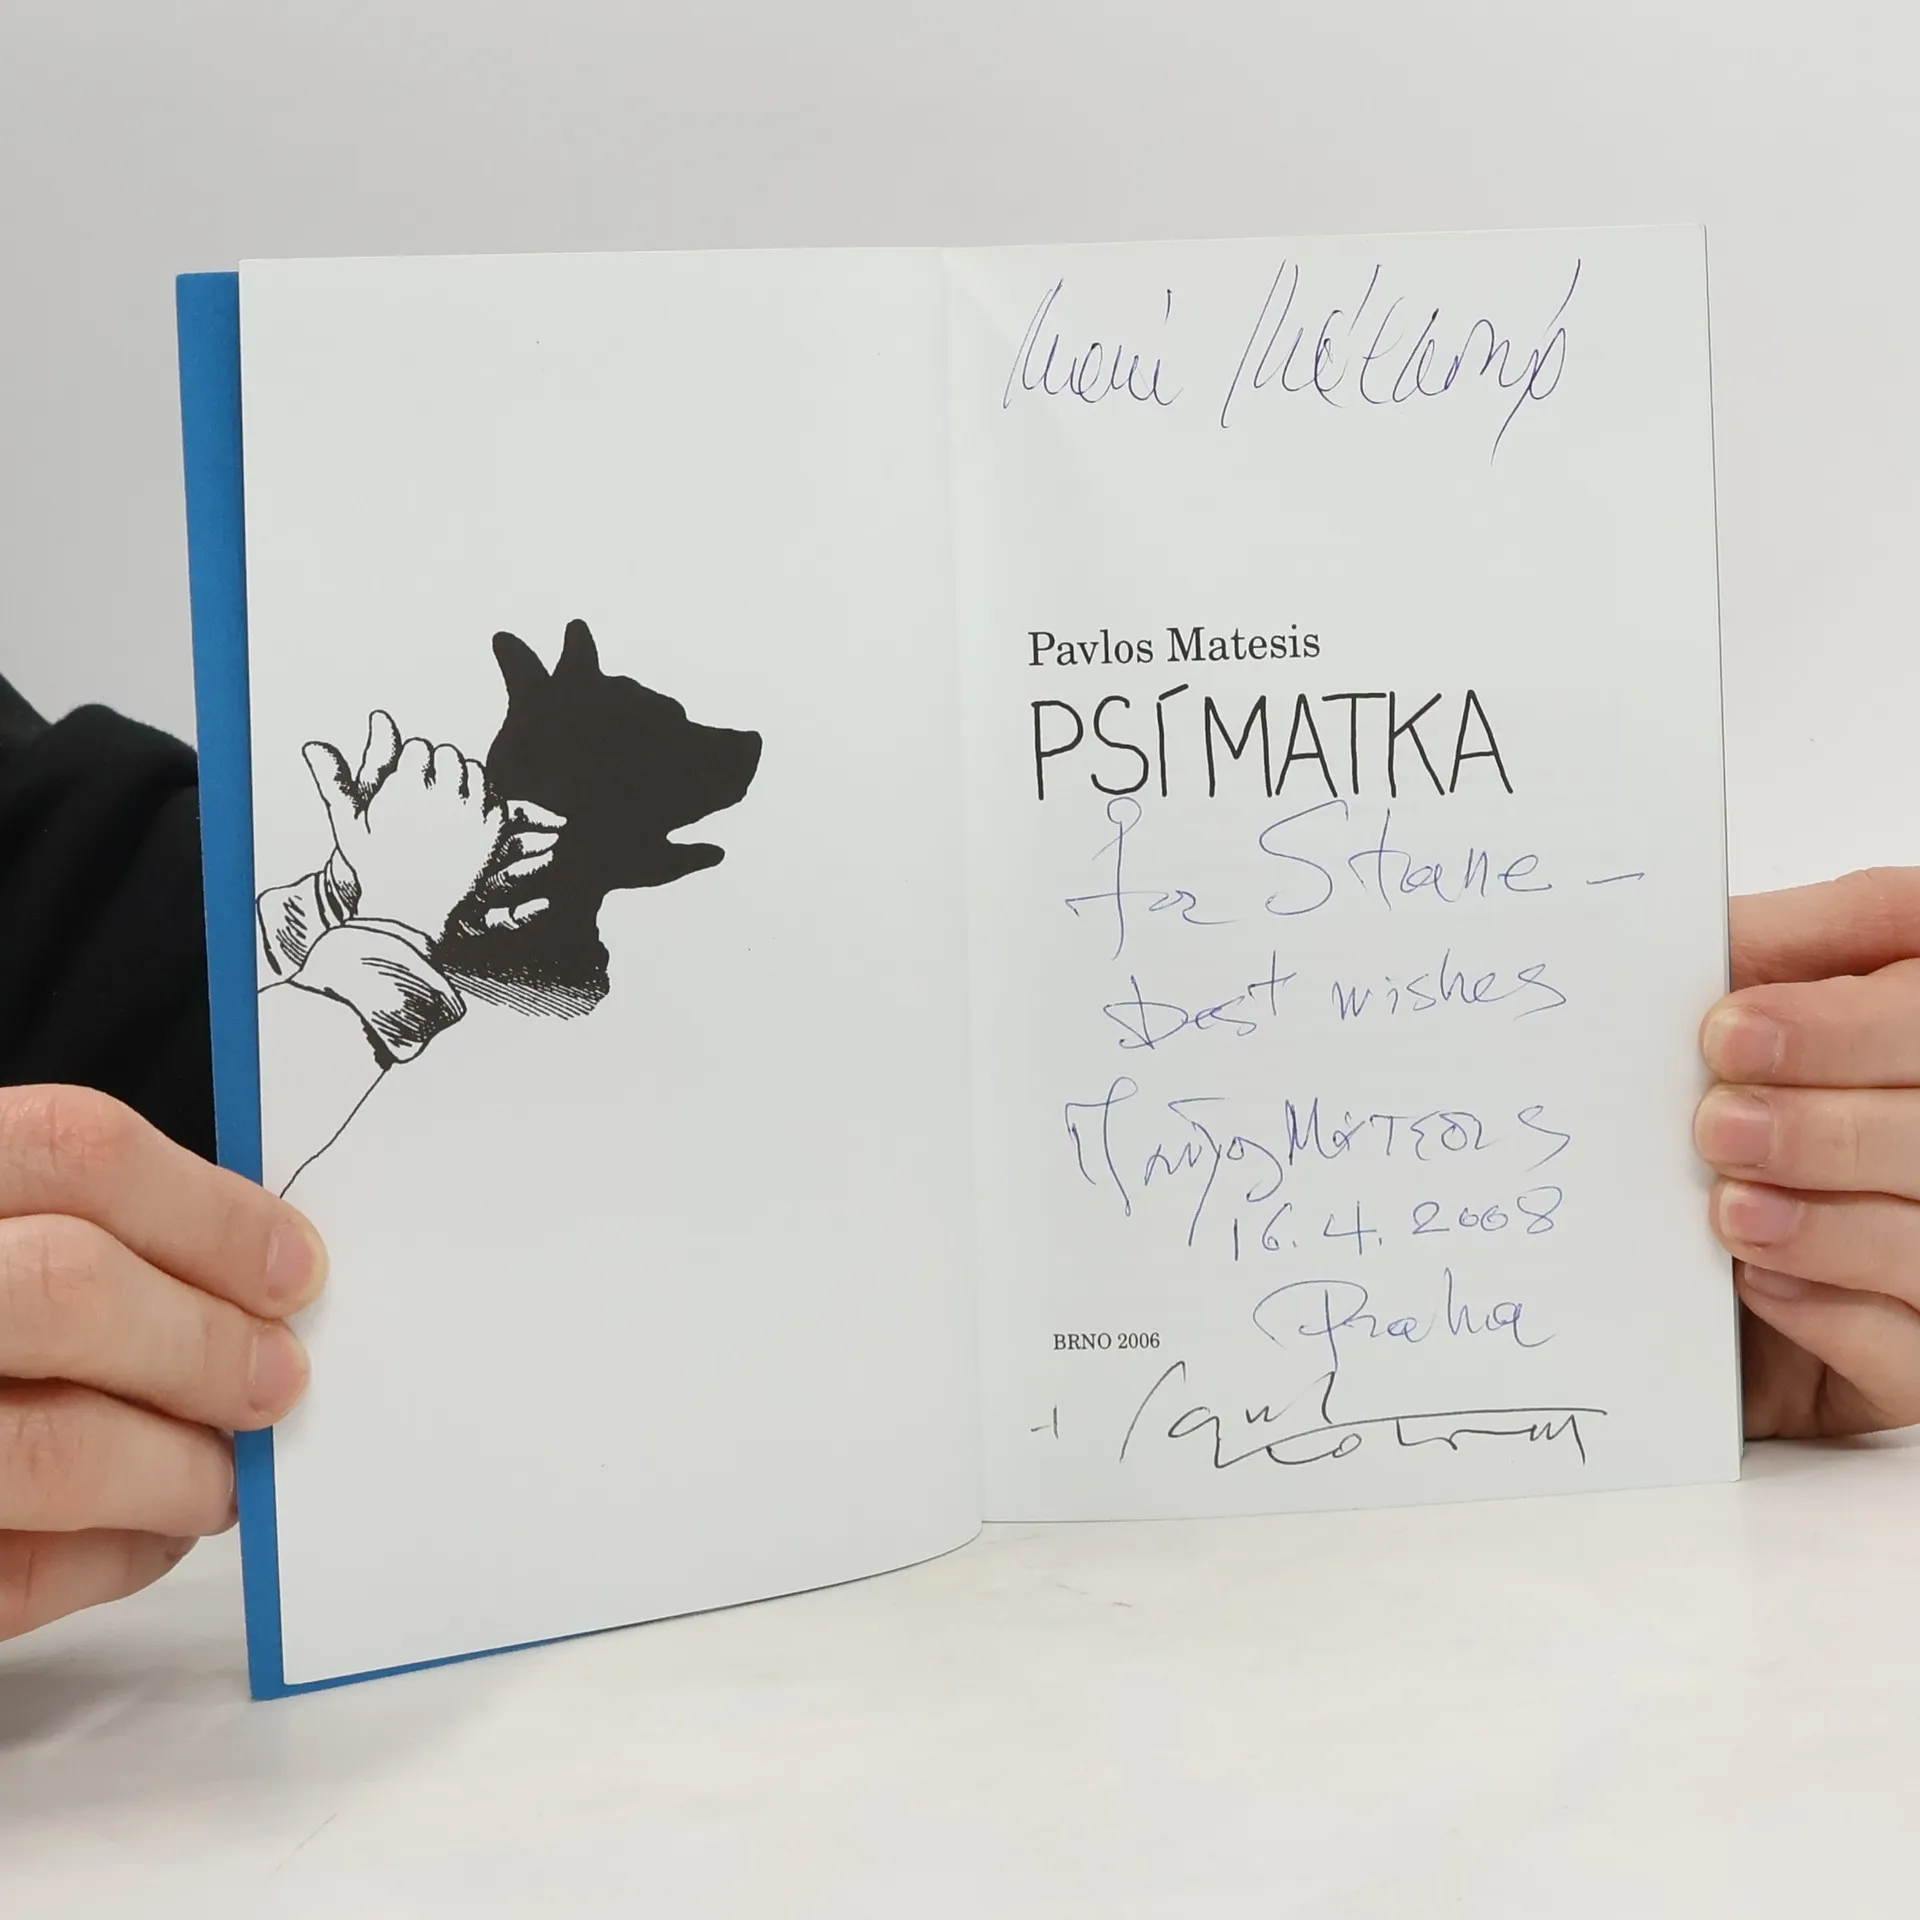 Pavlos Matesis
PSÍ MATKA
for Stane –
Best wishes
Παύλος Μάτεσις
16. 4. 2008
Praha
BRNO 2006
+